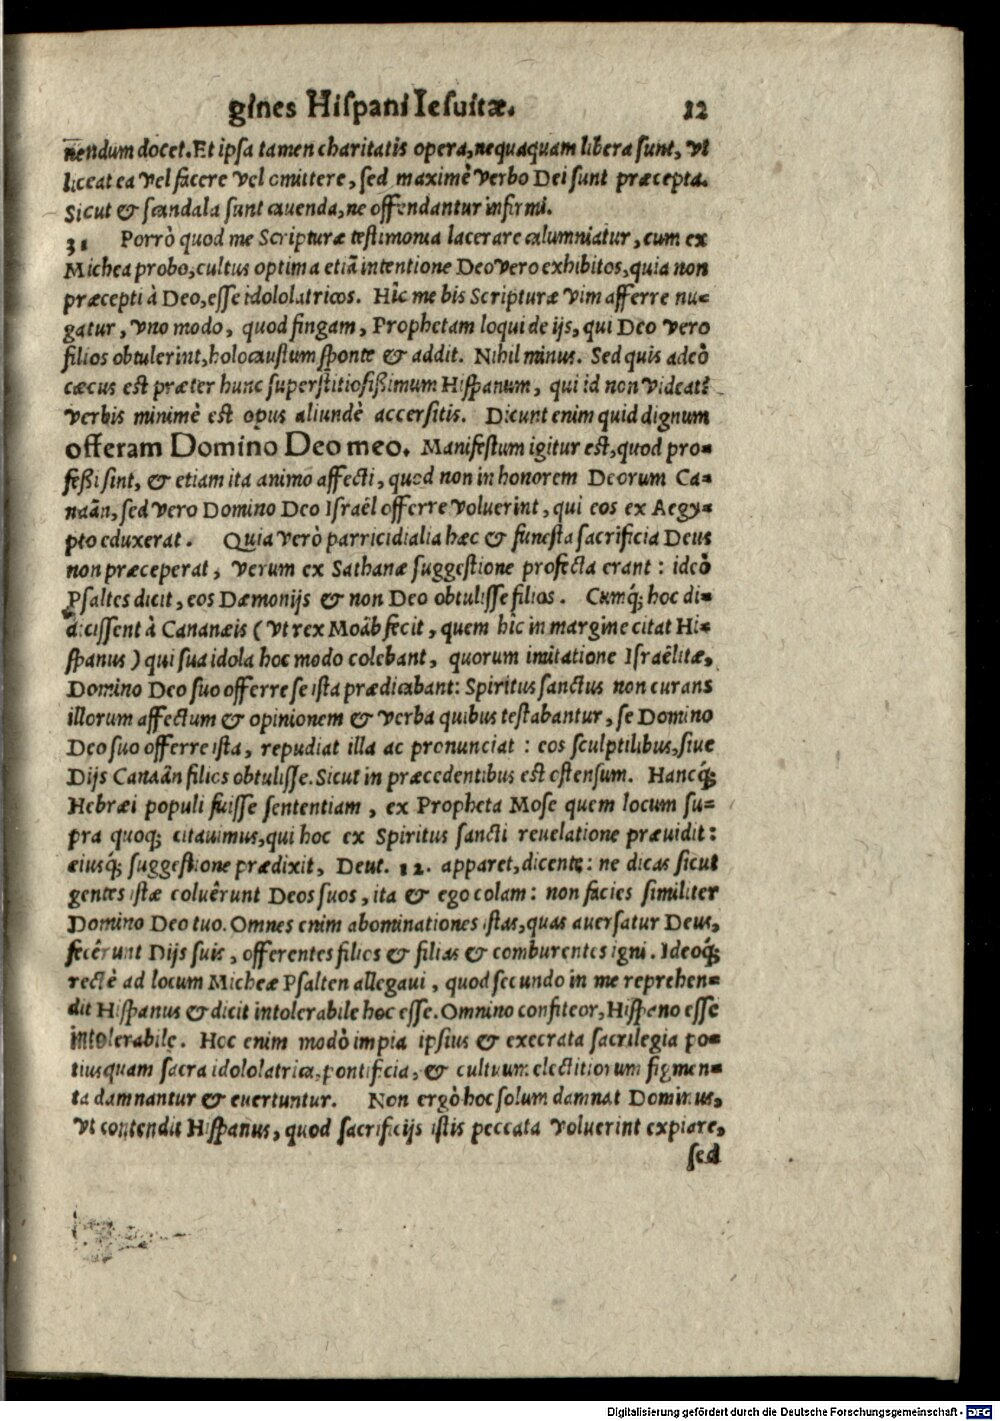 gines Hiſpani Ieſuitæ. 12
nendum docet. Et ipſa tamen charitatis opera, nequaquam libera ſunt, vt
liceat ea vel facere vel omittere, ſed maximè verbo Dei ſunt præcepta.
Sicut & ſcandala ſunt cauenda, ne offendantur infirmi.
31 Porrò quod me Scripturæ teſtimonia lacerare calumniatur, cum ex
Michea probo, cultus optima etiã intentione Deo vero exhibitos, quia non
præcepti à Deo, eſſe idololatricos. Hîc me bis Scripturæ vim afferre nu-
gatur, vno modo, quod fingam, Prophetam loqui de ijs, qui Deo vero
filios obtulerint, holocauſtum ſponte & addit. Nihil minus. Sed quis adeò
cæcus eſt præter hunc ſuperſtitioſißimum Hiſpanum, qui id non videat?
verbis minimè eſt opus aliundè accerſitis. Dicunt enim quid dignum
offeram Domino Deo meo. Manifeſtum igitur eſt, quod pro-
feßi ſint, & etiam ita animo affecti, quod non in honorem Deorum Ca-
naãn, ſed vero Domino Deo Iſraël offerre voluerint, qui eos ex Aegy-
pto eduxerat. Quia verò parricidialia hæc & funeſta ſacrificia Deus
non præceperat, verum ex Sathanæ ſuggeſtione profecta erant: ideò
Pſaltes dicit, eos Dæmonijs & non Deo obtuliſſe filios. Cumq́; hoc di-
diciſſent à Cananæis (vt rex Moâb fecit, quem hîc in margine citat Hi-
ſpanus) qui ſua idola hoc modo colebant, quorum imitatione Iſraêlitæ,
Domino Deo ſuo offerre ſe iſta prædicabant: Spiritus ſanctus non curans
illorum affectum & opinionem & verba quibus teſtabantur, ſe Domino
Deo ſuo offerre iſta, repudiat illa ac pronunciat: eos ſculptilibus, ſiue
Dijs Canaãn filios obtuliſſe. Sicut in præcedentibus eſt oſtenſum. Hancq́;
Hebræi populi fuiſſe ſententiam, ex Propheta Moſe quem locum ſu-
pra quoq; citauimus, qui hoc ex Spiritus ſancti reuelatione præuidit:
eiusq́; ſuggeſtione prædixit, Deut. 12. apparet, dicente: ne dicas ſicut
gentes iſtæ coluêrunt Deos ſuos, ita & ego colam: non facies ſimiliter
Domino Deo tuo. Omnes enim abominationes iſtas, quas auerſatur Deus,
fecêrunt Dijs ſuis, offerentes filios & filias & comburentes igni. Ideoq́;
rectè ad locum Micheæ Pſalten allegaui, quod ſecundo in me reprehen-
dit Hiſpanus & dicit intolerabile hoc eſſe. Omnino confiteor, Hiſpano eſſe
intolerabile. Hoc enim modò impia ipſius & execrata ſacrilegia po-
tiusquam ſacra idololatrica, pontificia, & cultuum electitiorum figmen-
ta damnantur & euertuntur. Non ergò hoc ſolum damnat Dominus,
vt contendit Hiſpanus, quod ſacrificijs iſtis peccata voluerint expiare,
ſed
Digitalisierung gefördert durch die Deutsche Forschungsgemeinschaft - DFG